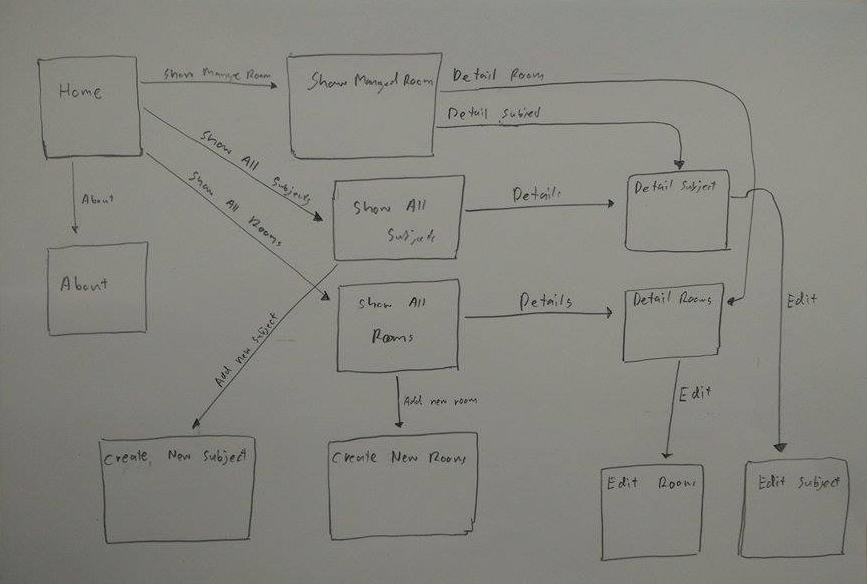 Home
Show Manage Room
Show Managed Room
Detail Room
Detail Subject
About
About
Show All Subjects
Show All Rooms
Show All
Subjects
Details
Detail Subject
Show All
Rooms
Details
Detail Rooms
Edit
Edit
Add new subject
Add new room
Create New Subject
Create New Rooms
Edit Rooms
Edit Subject